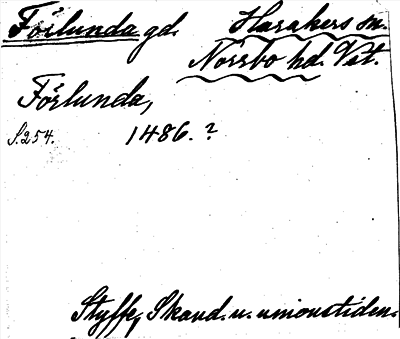 Förlunda gd. Harakers sn.
Norrbo hd. Vst.
Förlunda,
S. 254. 1486. ?
Styffe, Skand. u. unionstiden.